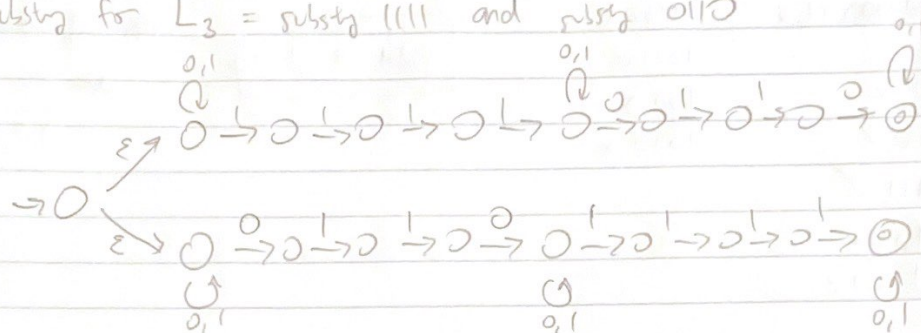 substrg for L₃ = substrg 1111 and substrg 0110
0,1 0,1 0,1
1 1 1 1 0 1 1 0
ε
→
ε
0 1 1 0 1 1 1 1
0,1 0,1 0,1